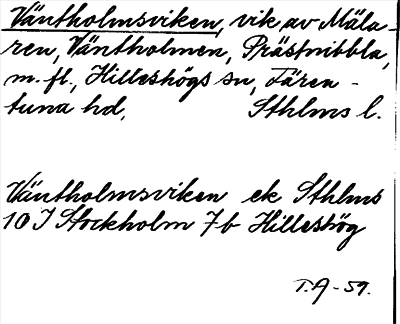 Väntholmsviken, vik av Mäla-
ren, Väntholmen, Prästnibbla,
m. fl., Hilleshögs sn, Fären-
tuna hd, Sthlms l.
Väntholmsviken ek Sthlms
10 I Stockholm 7b Hilleshög
T.A-59.